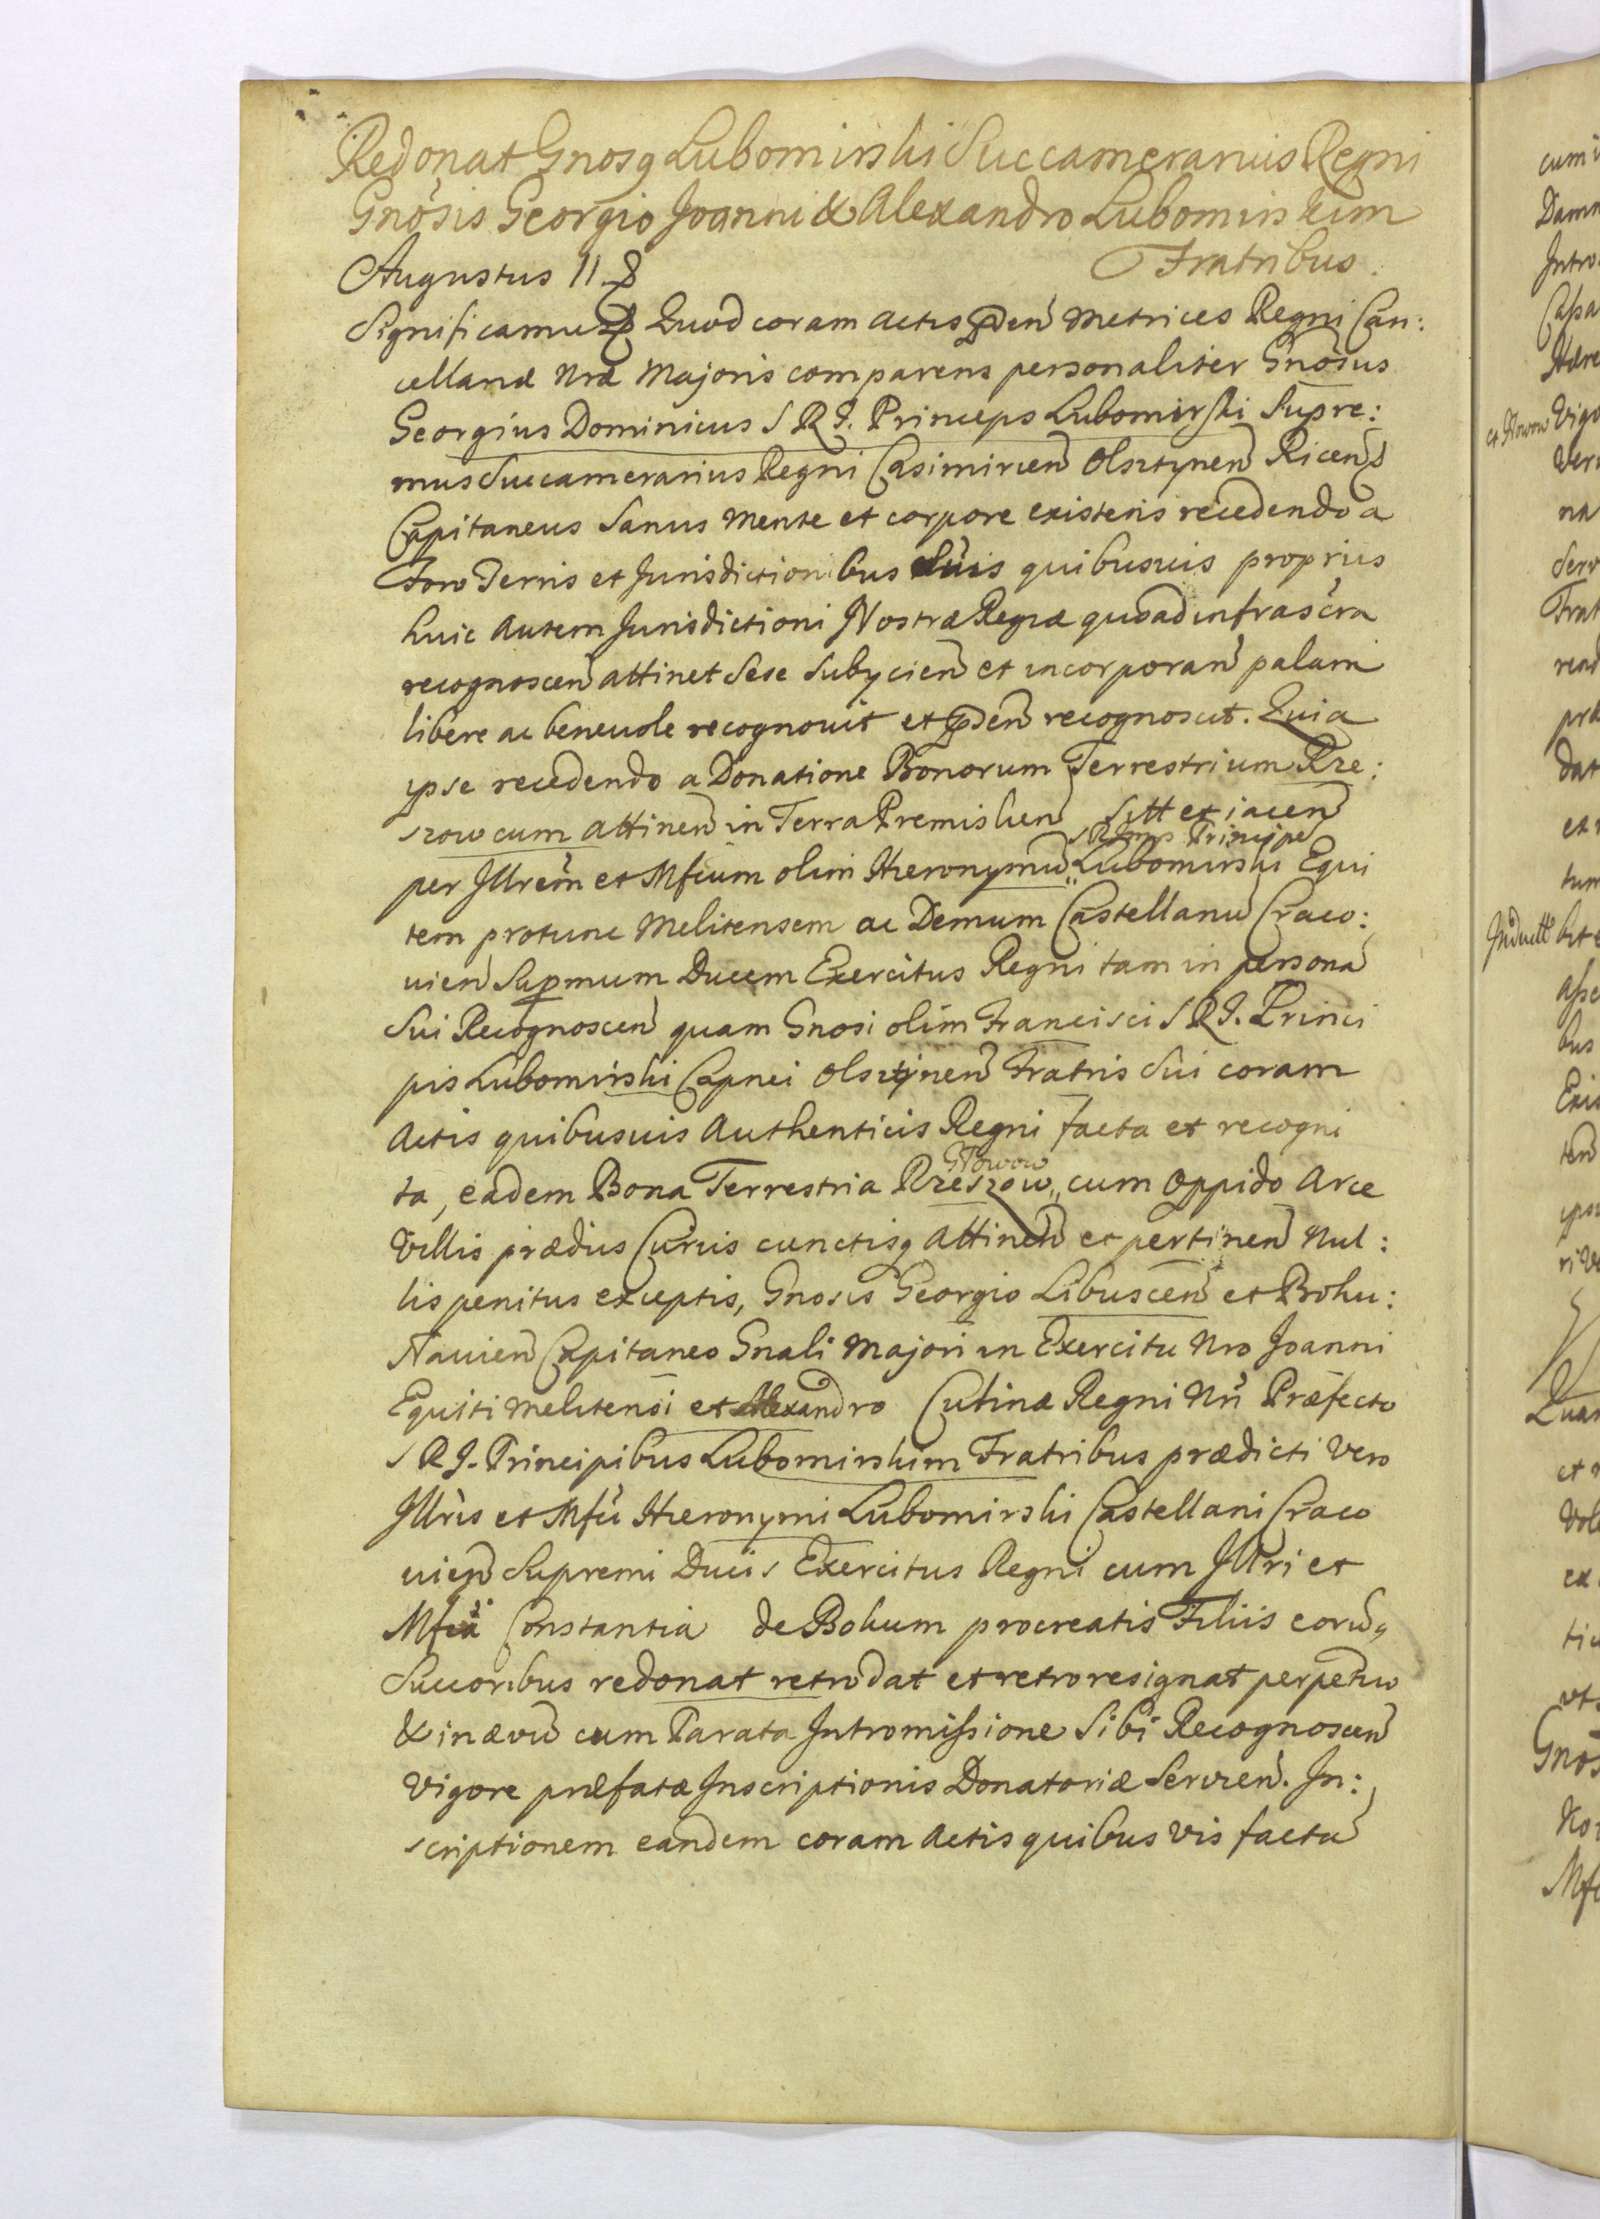 Redonat Gnosq Lubomirski Succamerarius Regni
Gnosis Georgio Joanni & Alexandro Lubomirskim
Fratribus.
Augustus 11. 8
Significamus Quod coram actis pñden Metrices Regni Can:
cellariæ Nræ Majoris comparens personaliter Gnosus
Georgius Dominicus S R I. Princeps Lubomirski Supre:
mus Succamerarius Regni Casimirien Olsztynen Ricens
Capitaneus Sanus mente et corpore existens recedendo a
Foro Terris et Jurisdictionibus suis quibusuis proprius
huic autem Jurisdictioni Nostræ Regiæ quoad infrascra
recognoscen attinet Sese Subycien et incorporan palam
libere ac beneuole recognouit et pñden recognoscit. Quia
ypse recedendo a Donatione Bonorum Terrestrium Rze:
szow cum attinen in Terra Premislien Sitt et iacen
per Illrem et Mfcum olim Hieronymu S R Imp Principe Lubomirski Equi
tem protunc Melitensem ac Demum Castellanu Craco:
uien Supmum Ducem Exercitus Regni tam in persona
Sui Recognoscen quam Gnosi olim Francisci S R I. Princi
pis Lubomirski Capnei Olsztynen Fratris Sui coram
Actis quibusuis Authenticis Regni facta et recogni
ta, eadem Bona Terrestria Rzeszow Głowow cum Oppido Arce
Villis prædiis Curiis cunctisq attinen et pertinen Nul:
lis penitus exceptis, Gnosis Georgio Libuscen et Bohu:
slauien Capitaneo Gnali Majori in Exercitu Nro Joanni
Equiti melitensi et Alexandro Culinæ Regni Nri Præfecto
S R I. Principibus Lubomirskim Fratribus prædicti Vero
Illris et Mfci Hieronymi Lubomirski Castellani Craco
uien Supremi Ducis Exercitus Regni cum Illri et
Mfca Constantia de Bokum procreatis Filiis coruq
Succoribus redonat retrodat et retroresignat perpetuo
& in ævu cum Parata Intromissione Sibi Recognoscen
Vigore præfatæ Inscriptionis Donatoriæ Servien. In:
scriptionem eandem coram Actis quibus vis facta